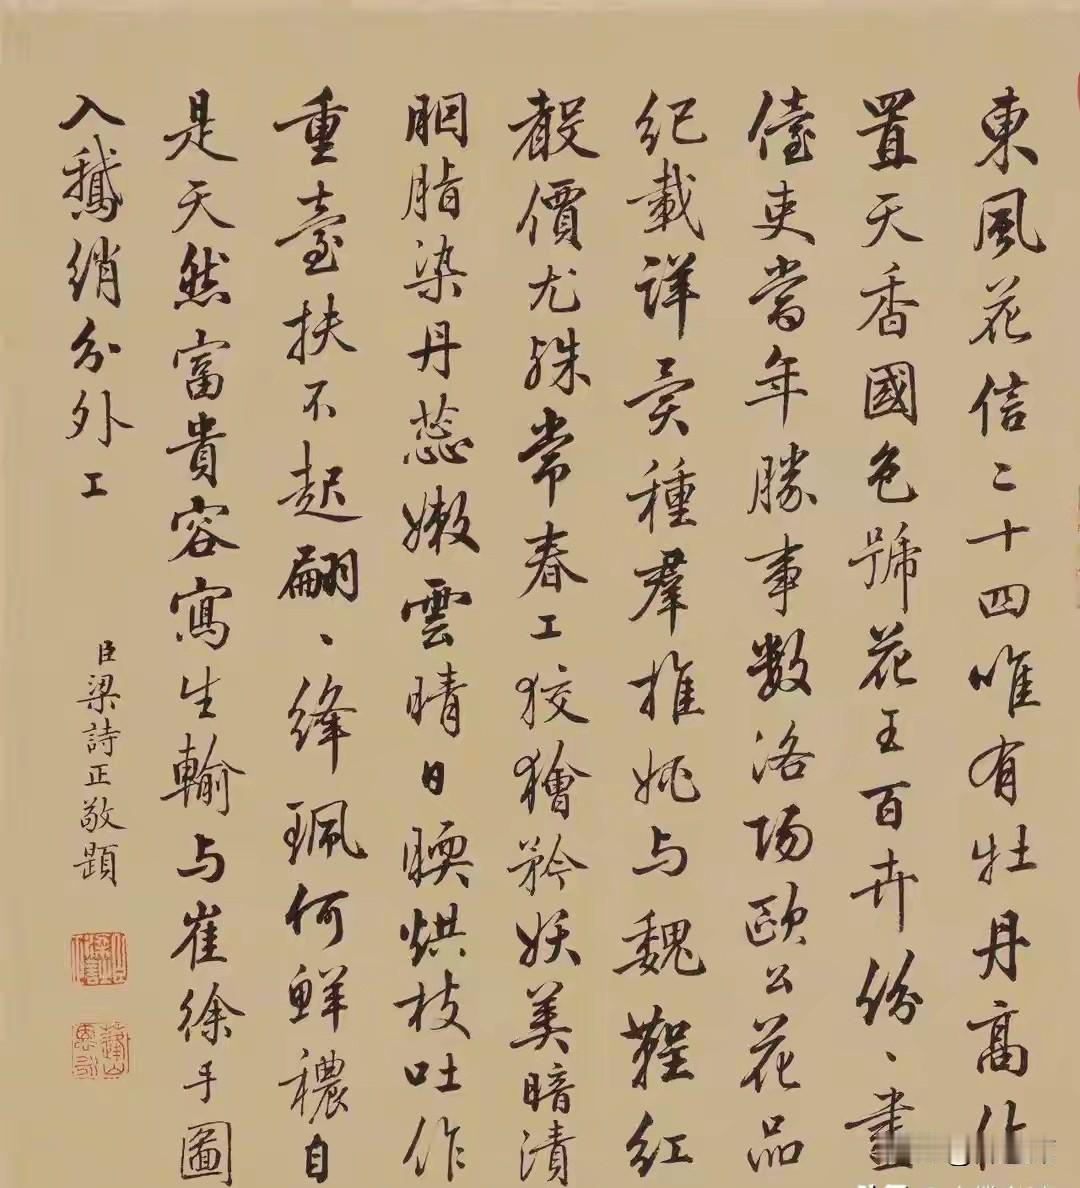 東風花信二十四唯有牡丹高位
置天香國色號花王百卉份、盡
儓吏當年勝事數洛場歐公花品
紀載詳異種羣推姚与魏鞓紅
聲價尤殊常春工狡獪矜妖美暗漬
胭脂染丹蕊嫩雲晴日㬉烘枝吐作
重臺扶不起翩、絳珮何鮮穠自
是天然富貴容寫生輸与崔徐手圖
入鵝綃分外工
臣梁詩正敬題